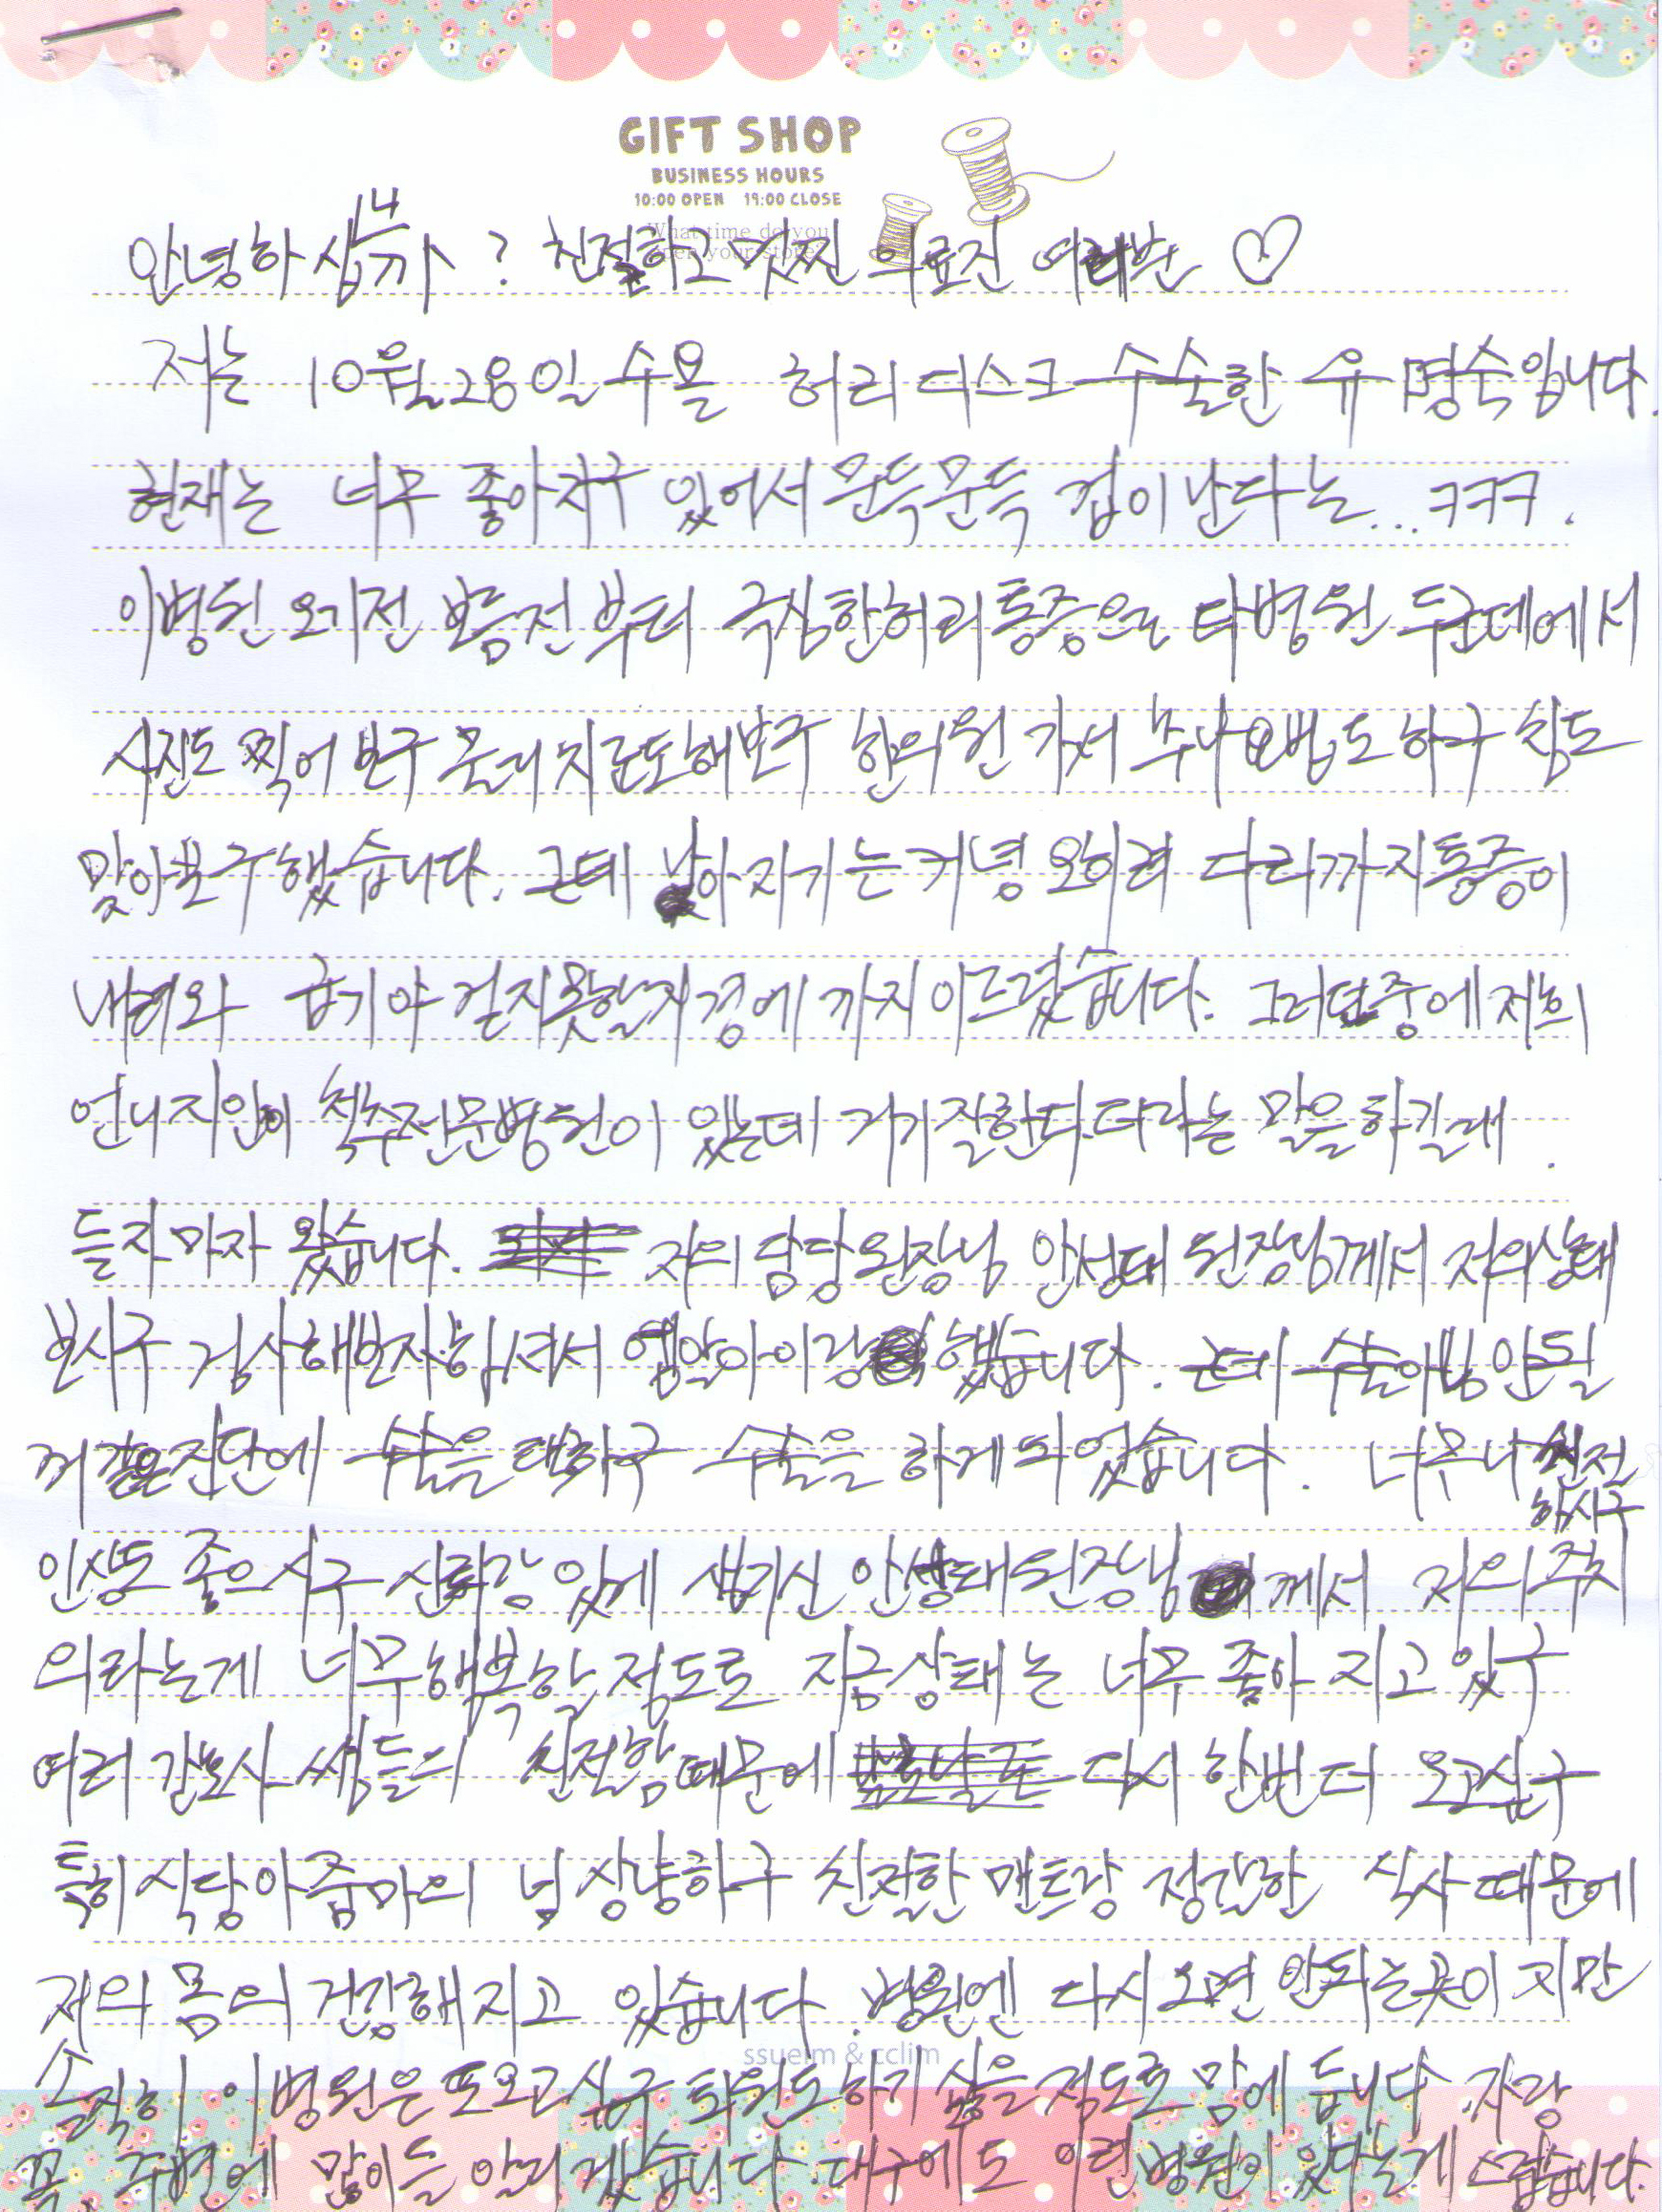 GIFT SHOP
BUSINESS HOURS
10:00 OPEN 19:00 CLOSE
What time do you
open your store?
안녕하십니까? 친절하고 멋찐 의료진 여러분 ♡
저는 10월28일 수요일 허리디스크수술한 유명숙입니다.
현재는 너무 좋아지구 있어서 문득문득 겁이난다는...ㅋㅋㅋ.
이병원 오기전 보름전부터 극심한허리통증으로 타병원 두군데에서
사진도 찍어보구 물리치료도해보구 한의원가서 추나요법도하구 침도
맞아보구했습니다. 근데 낳아지기는커녕 오히려 다리까지통증이
내려와 급기야 걷지못할지경에까지이르렀습니다. 그러던중에 저희
언니지인이 척추전문병원이 있는데 거기잘한다.더라는 말을하길래.
듣자마자 왔습니다. 저의담당원장님 안성태 원장님께서 저의상태
보시구 검사해보자하셔서 엠알아이랑 했습니다. 근데 수술아님안될
꺼같은진단에 수술을택하구 수술을 하게되었습니다. 너무나 친절
하시구
인상도 좋으시구 신뢰감있게 생기신 안성태원장님께서 저의주치
의라는게 너무행복할정도로 지금상태는 너무좋아지고있구
여러간호사쌤들의 친절함때문에 다시한번더 오고싶구
특히식당아줌마의 넘상냥하구 친절한 맨트랑 정갈한 식사때문에
저의몸의 건강해지고 있습니다. 병원엔 다시오면안되는곳이지만
솔직히 이병원은또오고싶구 퇴원도하기싫을정도로 맘에듭니다.
꼭 주변에 많이들 알리겠습니다. 대구에도 이런병원이있다는게